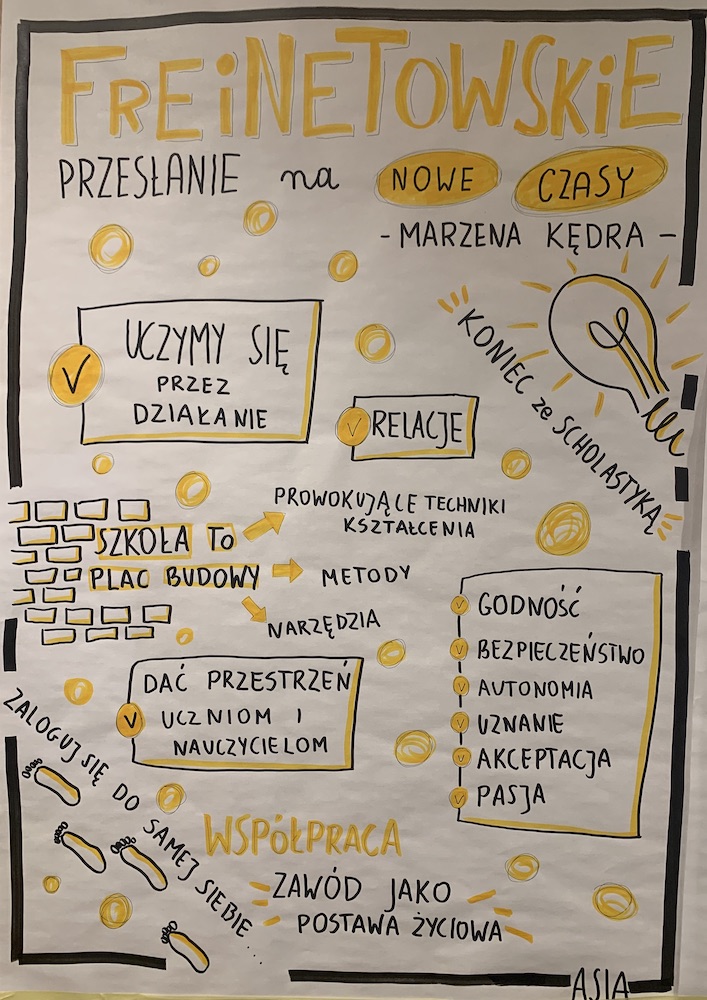 FREiNETOWSKiE
PRZESŁANIE na NOWE CZASY
- MARZENA KĘDRA -
KONIEC ze SCHOLASTYKĄ
UCZYMY SIĘ
PRZEZ
DZIAŁANIE
RELACJE
SZKOŁA TO
PLAC BUDOWY
PROWOKUJĄCE TECHNIKI
KSZTAŁCENIA
METODY
NARZĘDZIA
GODNOŚĆ
BEZPIECZEŃSTWO
AUTONOMIA
UZNANIE
AKCEPTACJA
PASJA
DAĆ PRZESTRZEŃ
UCZNIOM I
NAUCZYCIELOM
ZALOGUJ SIĘ DO SAMEJ SIEBIE...
WSPÓŁPRACA
ZAWÓD JAKO
POSTAWA ŻYCIOWA
ASIA